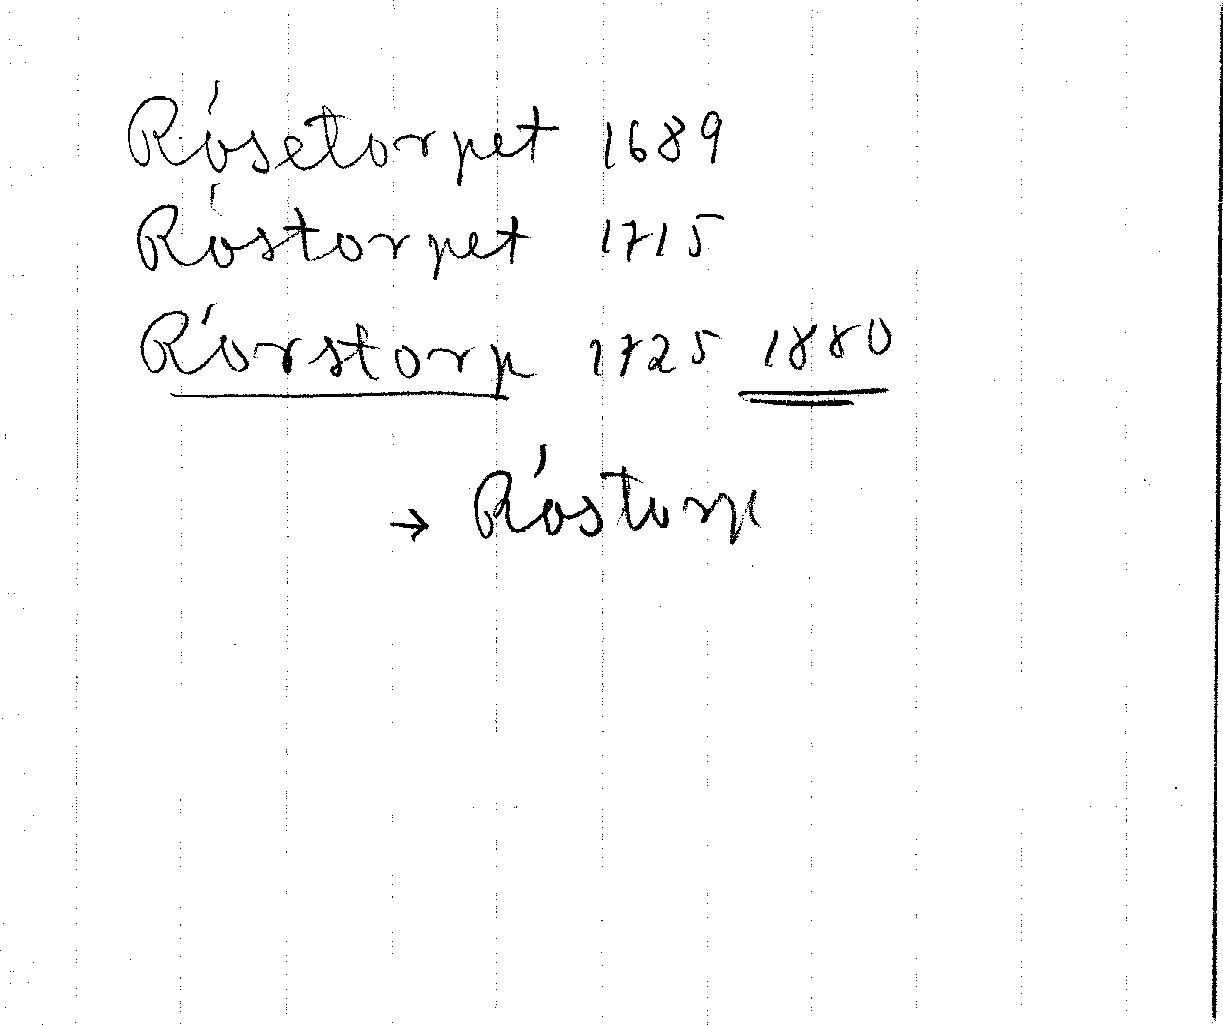 Rósetorpet 1689
Róstorpet 1715
Rórstorp 1725 1880
→ Róstorp